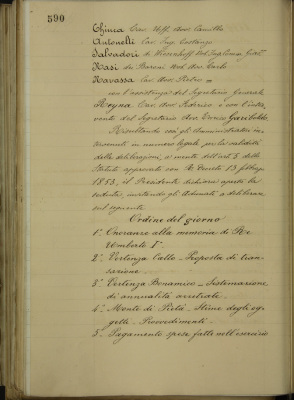 590
Chiusa Cav. Uff. Avv. Camillo
Antonelli Cav. Ing. Costanzo
Salvadori di Wiesenhoff Nob. Tommaso
Nasi dei Baroni Nob. Avv. Carlo
Navassa Cav. Avv. Pietro =
con l'assistenza del Segretario Generale
Reyna Cav. Avv. Federico e con l'inter=
vento del Segretario Avv. Enrico Gariboldi.
Risultando così gli Amministratori in=
tervenuti in numero legale per la validità
delle deliberazioni, a mente dell'art. 5 dello
Statuto approvato con R. Decreto 13 febbraio
1853, il Presidente dichiara aperta la
seduta, invitando gli Adunati a deliberare
sul seguente
Ordine del giorno
1°. Onoranze alla memoria di Re
Umberto I°.
2°. Vertenza Gallo - Proposta di tran=
sazione.
3°. Vertenza Bonamico - Sistemazione
di annualità arretrate.
4°. Monte di Pietà - Stima degli og=
getti - Provvedimenti.
5°. Pagamento spese fatte nell'esercizio